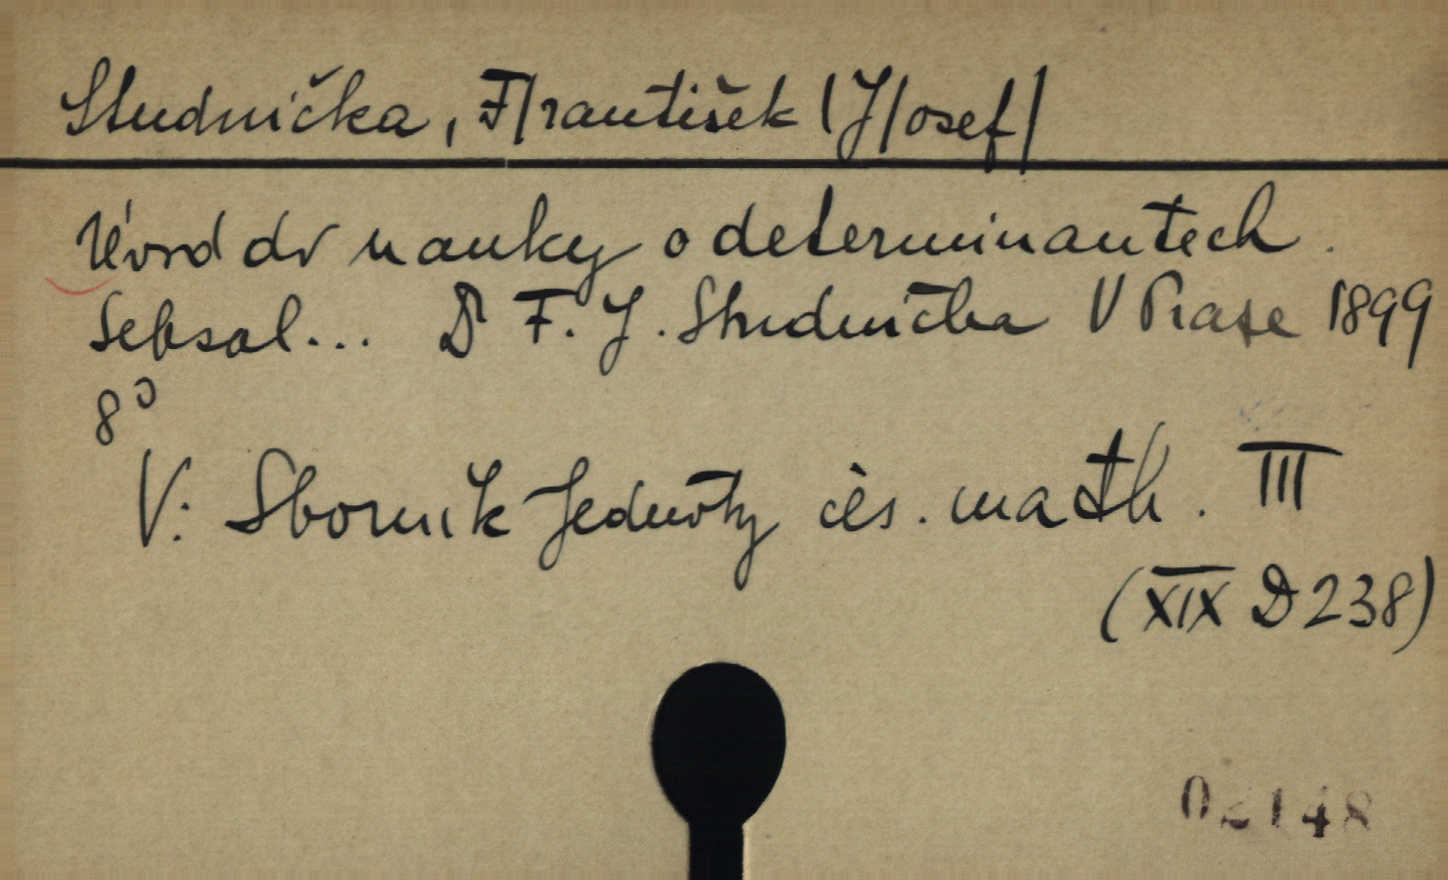 Studnička, F/rantišek (J/osef/
Úvod do nauky o determinantech.
Sebsal... Dr F. J. Studnička V Praze 1899
8°
V: Sborník Jednoty čes. math. III
(XIX D 238)
02148